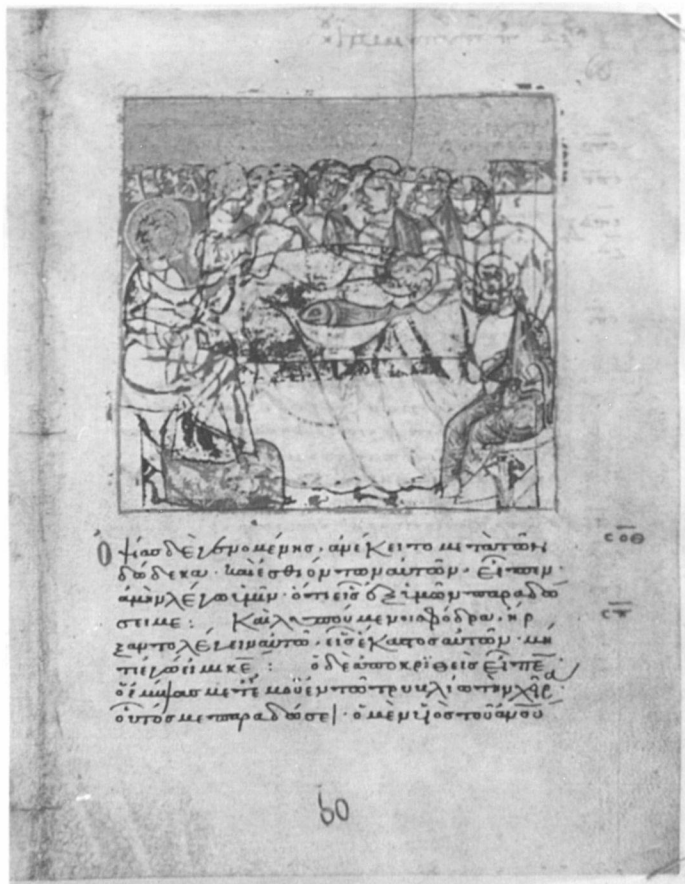 Ὀψίας δὲ γενομένης, ἀνέκειτο μετὰ τῶν
δώδεκα· καὶ ἐσθιόντων αὐτῶν· εἶπεν·
ἀμὴν λέγω ὑμῖν· ὅτι εἷς ἐξ ὑμῶν παραδώ
σει με: Καὶ λυπούμενοι σφόδρα, ἤρ
ξαντο λέγειν αὐτῶ, εἷς ἕκαστος αὐτῶν· μή
τι ἐγώ εἰμι κε: ὁ δὲ ἀποκριθεὶς εἶπε
ὁ ἐμβάψας μετ' ἐμοῦ ἐν τῶ τρυβλίω τὴν χεῖρα·
οὗτός με παραδώσει· ὁ μὲν υἱὸς τοῦ ἀνου
σοθ
60